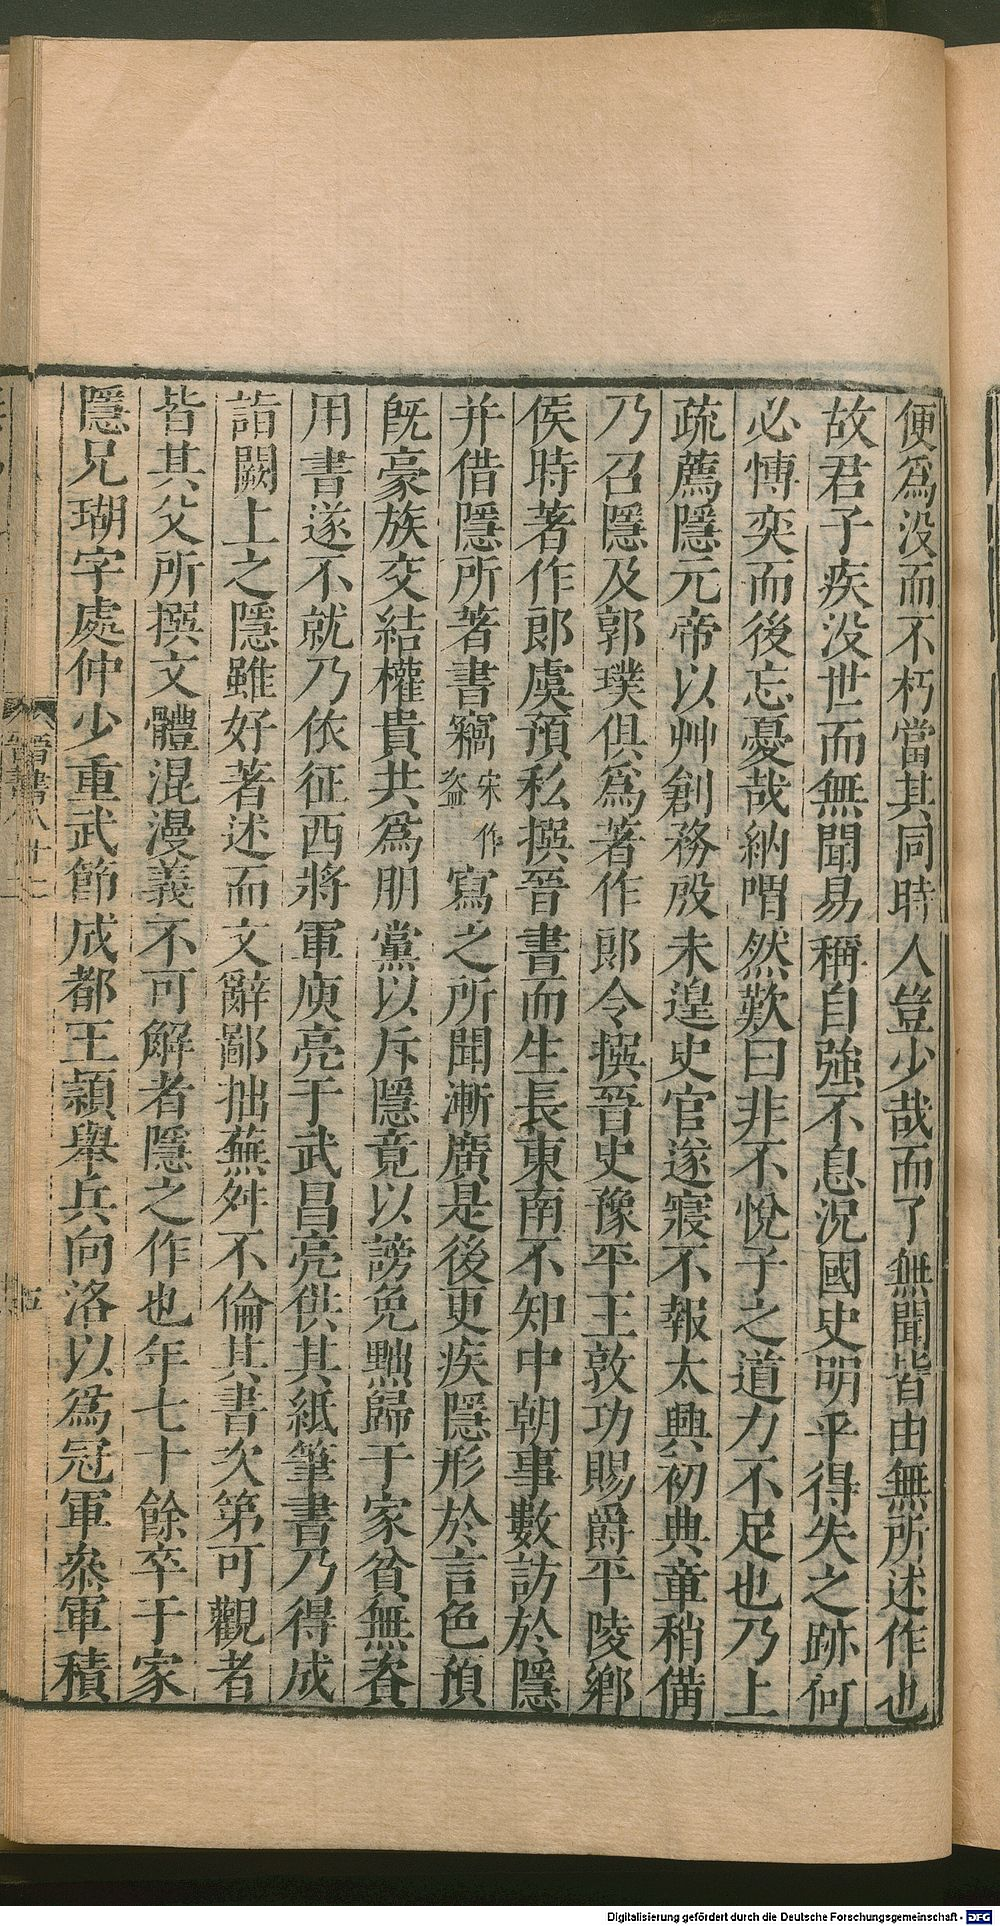 便爲没而不朽當其同時人豈少哉而了無聞皆由無所述作也
故君子疾没世而無聞易稱自強不息況國史明乎得失之跡何
必愽奕而後忘憂哉納喟然歎曰非不悅子之道力不足也乃上
疏薦隱元帝以艸創務殷未遑史官遂寢不報太興初典章稍備
乃召隱及郭璞俱爲著作郎令撰晉史豫平王敦功賜爵平陵鄉
侯時著作郎虞預私撰晉書而生長東南不知中朝事數訪於隱
并借隱所著書竊宋作盜寫之所聞漸廣是後更疾隱形於言色預
旣豪族交結權貴共爲朋黨以斥隱竟以謗免黜歸于家貧無資
用書遂不就乃依征西將軍庾亮于武昌亮供其紙筆書乃得成
詣闕上之隱雖好著述而文辭鄙拙蕪舛不倫其書次第可觀者
皆其父所撰文體混漫義不可解者隱之作也年七十餘卒于家
隱兄瑚字處仲少重武節成都王穎舉兵向洛以爲冠軍叅軍積
晉書八十二
五
Digitalisierung gefördert durch die Deutsche Forschungsgemeinschaft - DFG